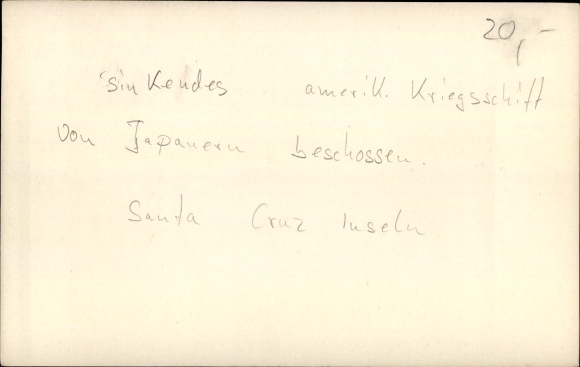 20,-
sinkendes amerik. Kriegsschiff
von Japanern beschossen.
Santa Cruz Inseln